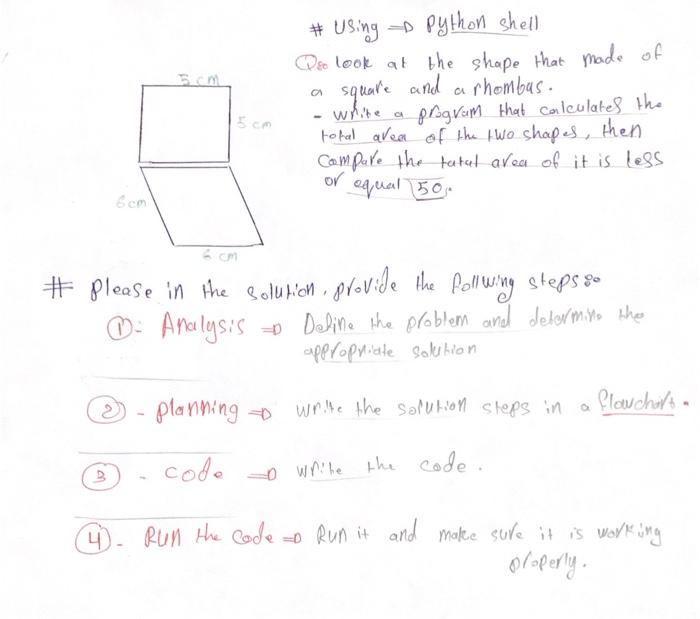 # Using ⇒ Python shell
Q: look at the shape that made of
a square and a rhombus.
- write a program that calculates the
total area of the two shapes, then
Compare the total area of it is less
or equal 50.
5 cm
5 cm
6 cm
6 cm
# please in the solution, provide the follwing steps:
①: Analysis ⇒ Define the problem and determine the
appropriate solution
② - planning ⇒ write the solution steps in a flowchart.
③ - code ⇒ write the code.
④ - RUN the code ⇒ Run it and make sure it is working
properly.